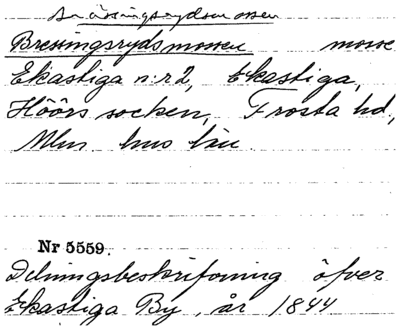 Brässingsrydsmossen
Bressingsrydsmossen mosse
Ekastiga n:r 2, Ekastiga,
Höörs socken, Frosta hd,
Mlm hus län.
Nr 5559.
Delningsbeskrifvning öfver
Ekastiga By, år 1844